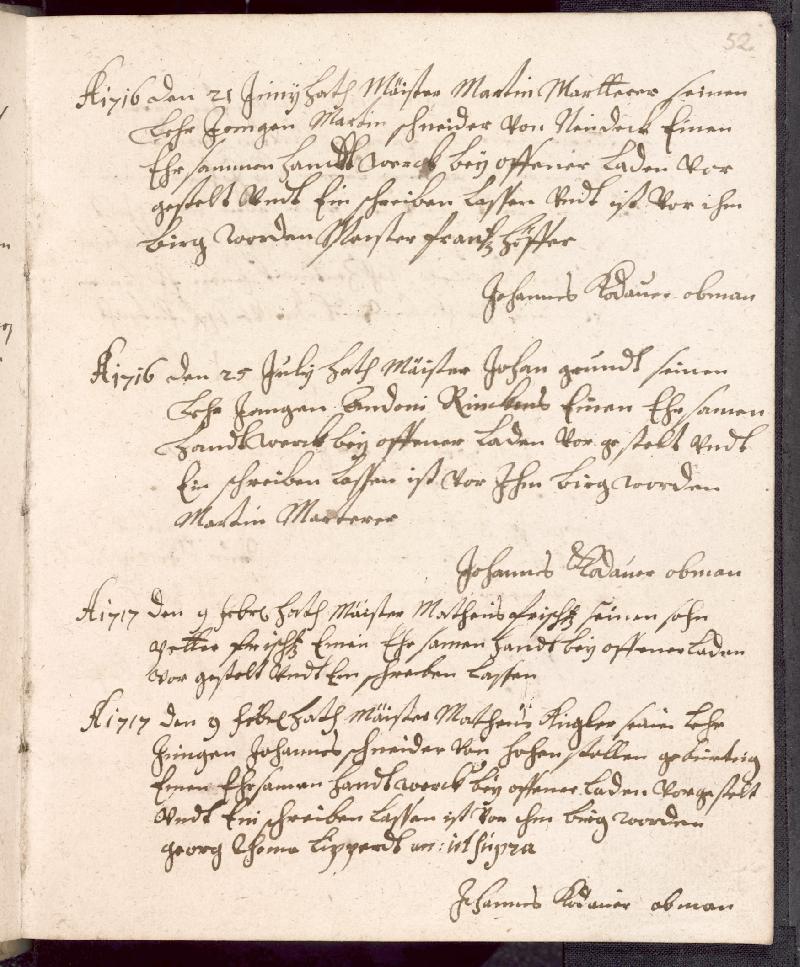 52.
A 1716 den 21 Juny hath Maister Martin Martterer seinen
Lehr Jongen Martin schneider Von Neudeck Einen
Ehrsammen handtwerck beÿ offener Laden Vor
gestelt Vndt Ein schreiben Lassen Vndt ist Vor ihm
birg worden Meister frantz höffer
Johannes Kodauer obman
A 1716 den 25 July hath Maister Johan grundt seinen
Lehr Jongen Andoni Einen Ehrsamen
handtwerck beÿ offener Laden Vor gestelt Vndt
Ein schreiben Lassen ist Vor Ihm birg worden
Martin Marterer
Johannes Kodauer obman
A 1717 den 9 febr hath Maister Matheus frischtz seinen sohn
petter frischtz Einen Ehrsamen handt beÿ offener Laden
Vor gestelt Vndt Ein schreiben Lassen
A 1717 den 9 febr hath Maister Matheus Kugler seinen Lehr
Jungen Johannes schneider Von hohen stellen gebürtig
Einen Ehrsamen handtwerck beÿ offener Laden Vorgestelt
Vndt Ein schreiben Lassen ist Vor ihm birg worden
georg Thoma Lipperdt ut supra
Johannes Kodauer obman